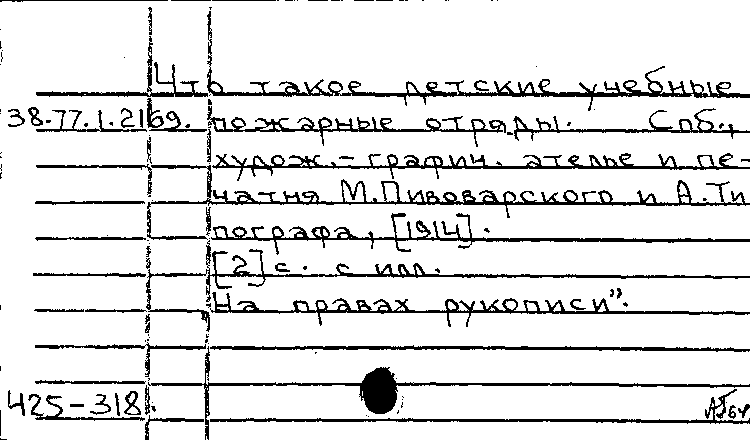 Что такое детские учебные
38.77.1.2169. пожарные отряды. Спб.,
худож.-графич. ателье и пе-
чатня М.Пивоварского и А.Ти
пографа, [1914].
[2]с. с илл.
На правах рукописи".
425-318.